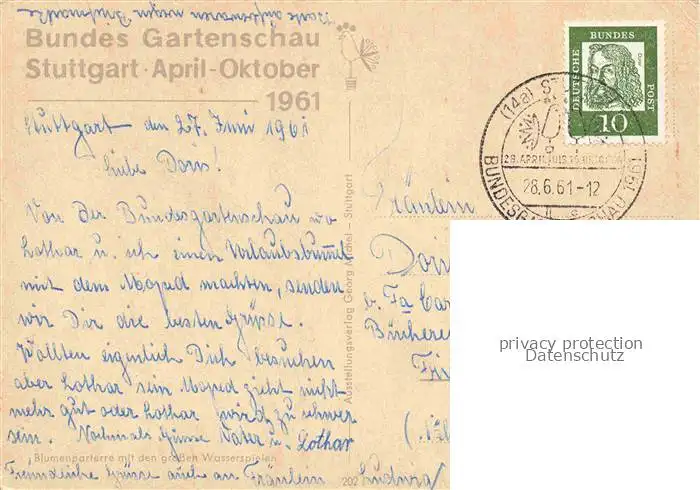 Karte aufbewahren wegen Briefmarke
Bundes Gartenschau
Stuttgart · April-Oktober
1961
Stuttgart den 27. Juni 1961
Liebe Doris!
Von der Bundesgartenschau wo
Lothar u. ich einen Urlaubsbummel
mit dem Moped machten, senden
wir Dir die besten Grüße.
Wollten eigentlich Dich besuchen
aber Lothar sein Moped zieht nicht
mehr gut oder Lothar wird zu schwer
sein. Nochmals Grüsse Vater u. Lothar
Blumenparterre mit den großen Wasserspielen
Freundliche Grüsse auch an Fräulein Ludwig
202
Ausstellungsverlag Georg Stuttgart
DEUTSCHE BUNDES POST
Dürer
10
(14a) ST
28. APRIL BIS 15. OKTOBER
28.6.61-12
BUNDESGA SCHAU 1961
Fräulein
Doris
b. Fa Car
Büchere
privacy protection
Datenschutz